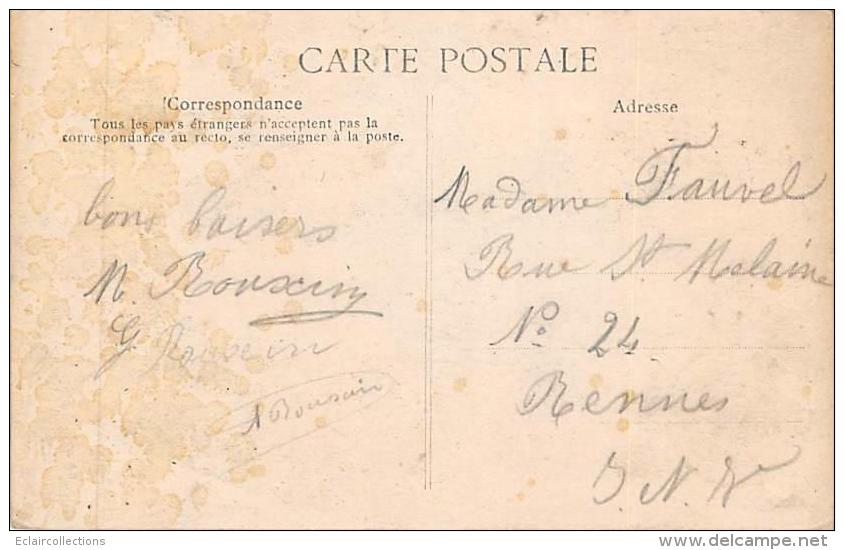 CARTE POSTALE
Correspondance
Tous les pays étrangers n'acceptent pas la
correspondance au recto, se renseigner à la poste.
bons baisers
M. Rouxin
G Rouxin
A Rouxin
Adresse
Madame Fauvel
Rue St Melaine
No. 24
Rennes
I. V.
Eclaircollections
delcampe.net